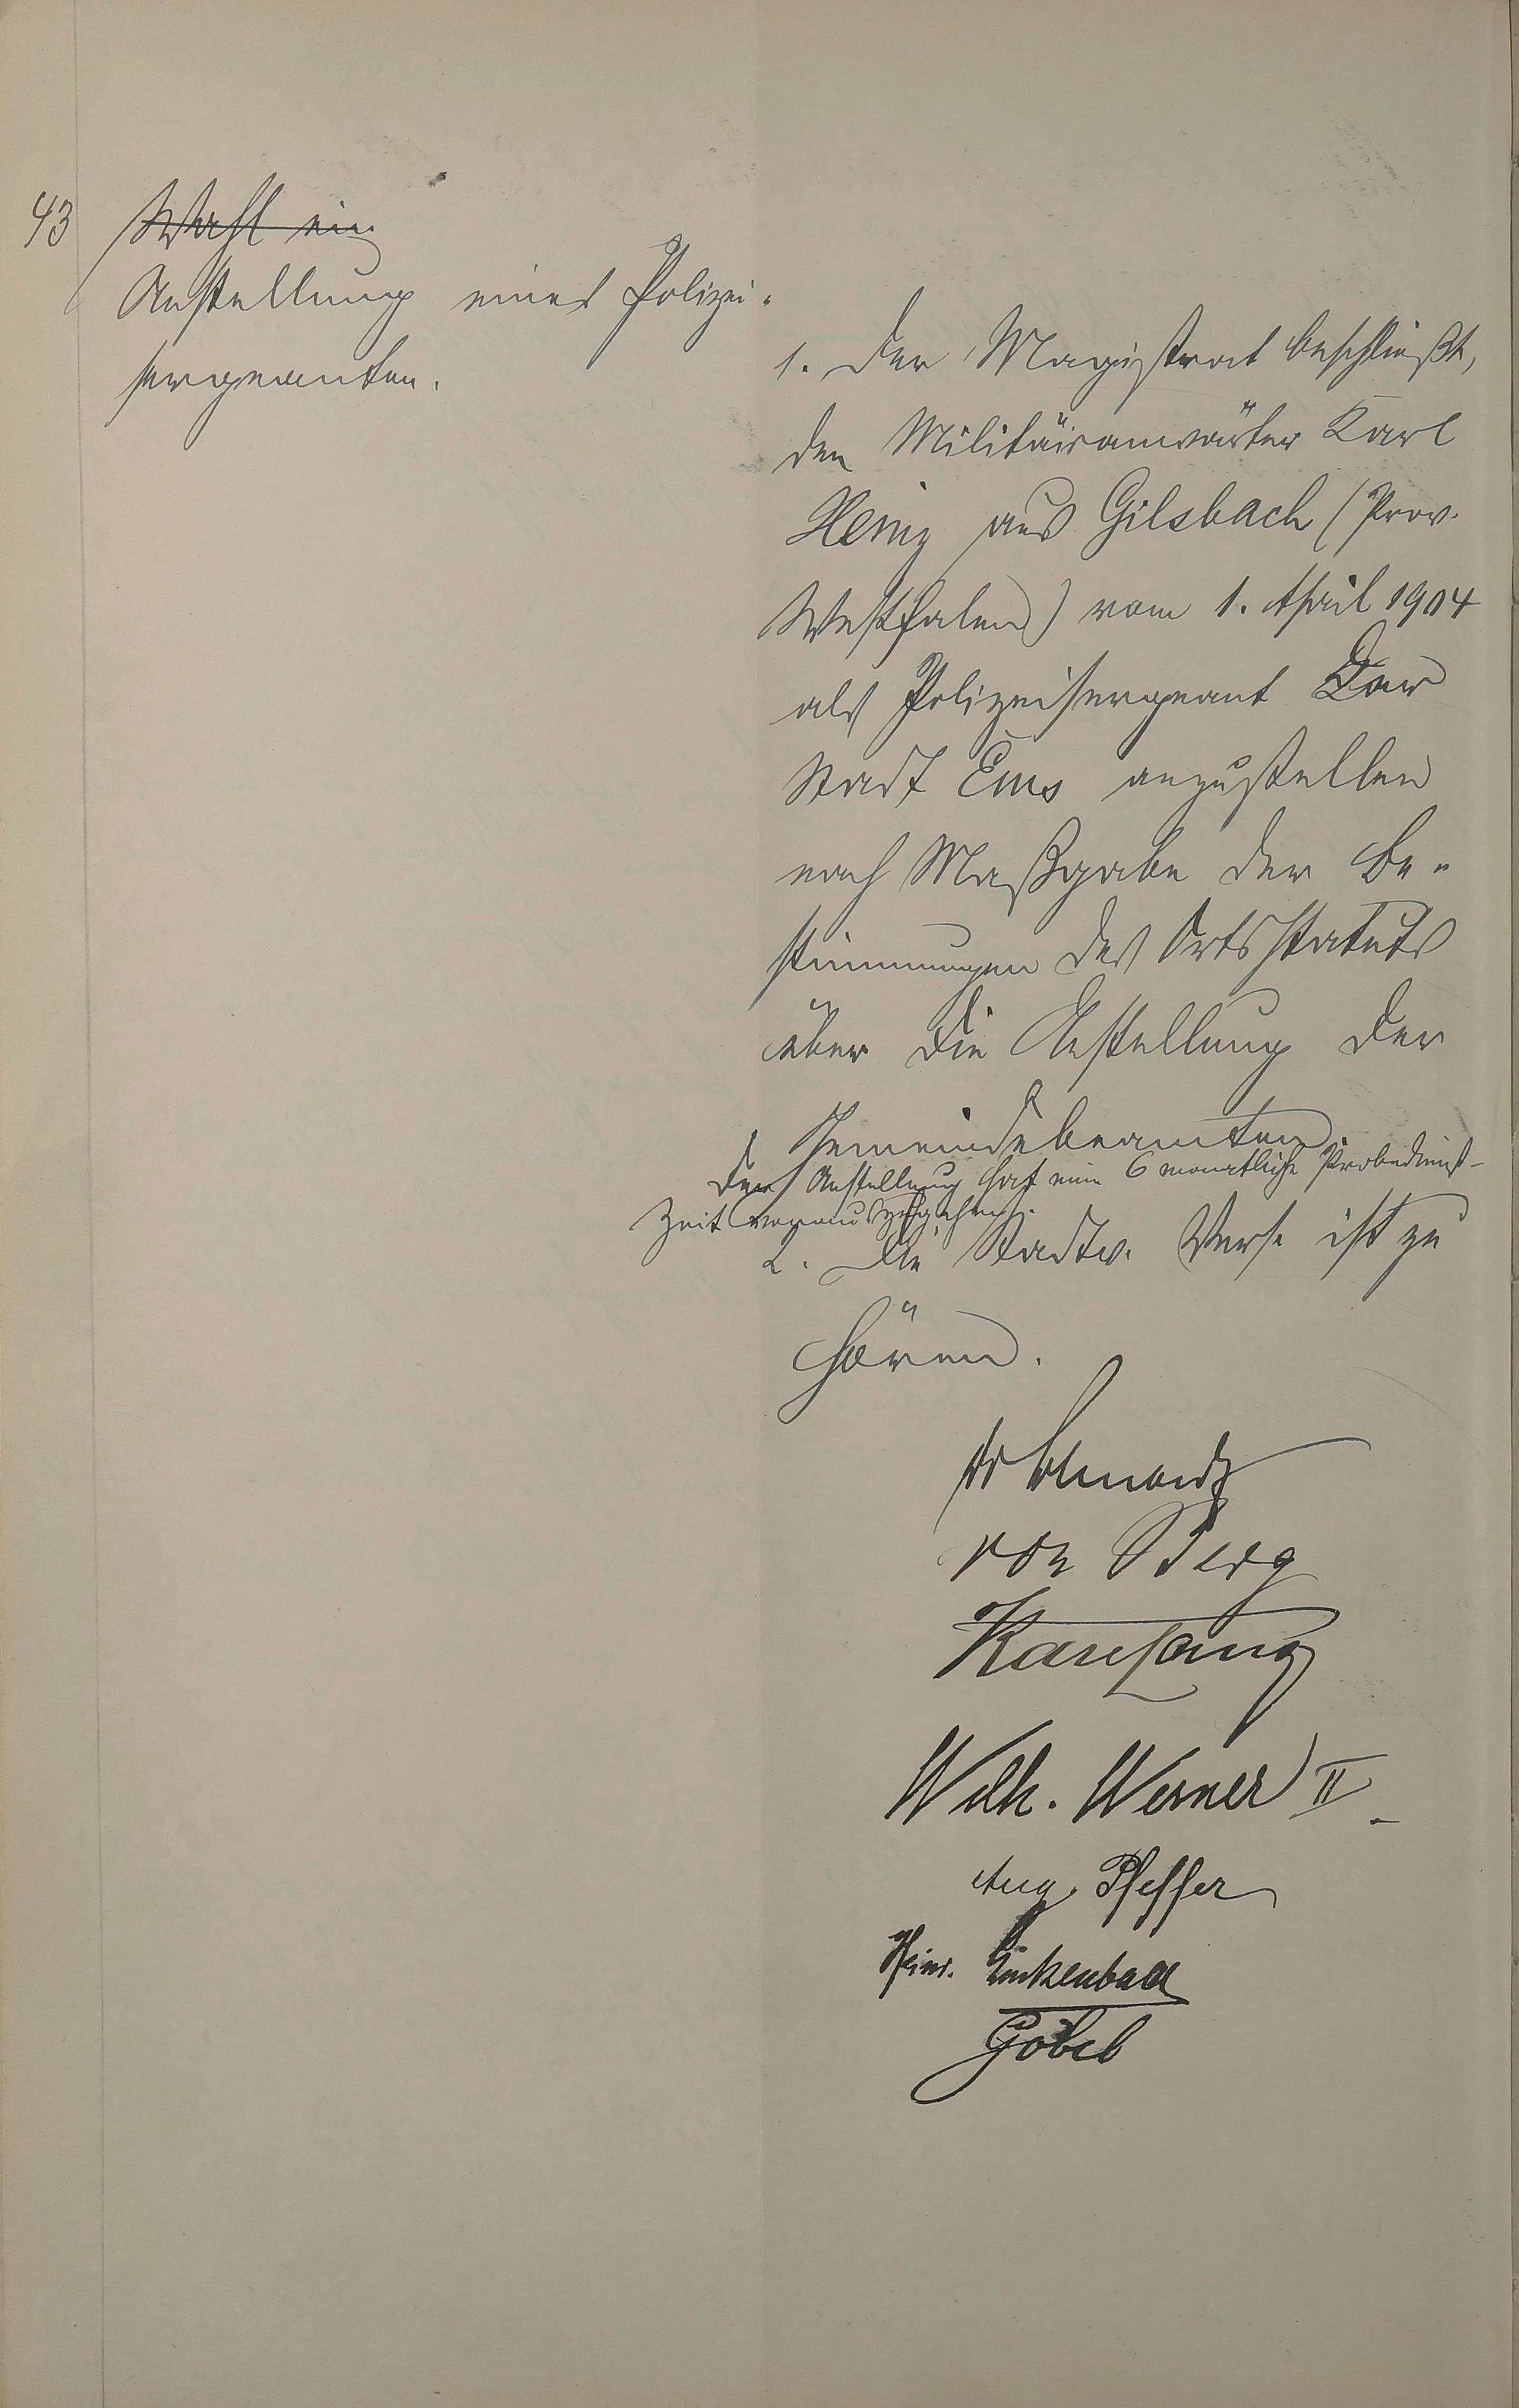 43 Wahl ein
Anstellung eines Polizei-
sergeanten.
1. Der Magistrat beschließt,
den Militäranwärter Karl
Heinz aus Gilsbach (Prov.
Westfalen) vom 1. April 1904
als Polizeisergeant der
Stadt Ems anzustellen
nach Maßgabe der Be-
stimmungen des Ortsstatuts
über die Anstellung der
Gemeindebeamten.
Der Anstellung hat eine 6 monatliche Probedienst-
zeit vorauszugehen.
2. Die Stadtv. Vers. ist zu
hören.
von Berg
Karl Lang
Wilh. Werner II
Aug. Pfeffer
Heinr. Linkenbach
Göbel